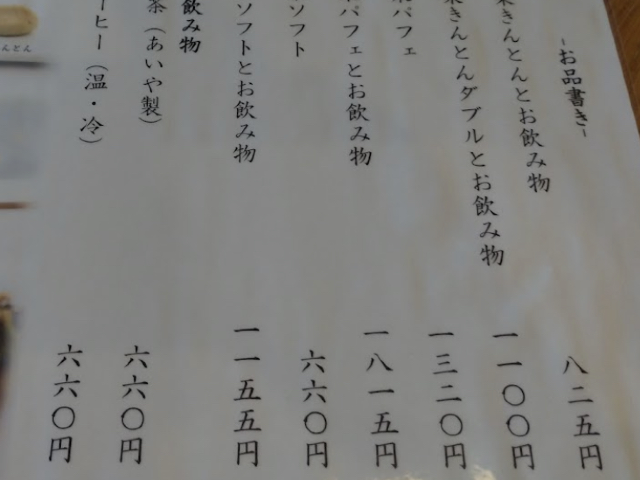 -お品書き-
きんとんとお飲み物 八二五円
きんとんダブルとお飲み物 一一〇〇円
パフェ 一三二〇円
パフェとお飲み物 一八一五円
ソフト 六六〇円
ソフトとお飲み物 一一五五円
飲み物
茶（あいや製） 六六〇円
ーヒー（温・冷） 六六〇円
んとん